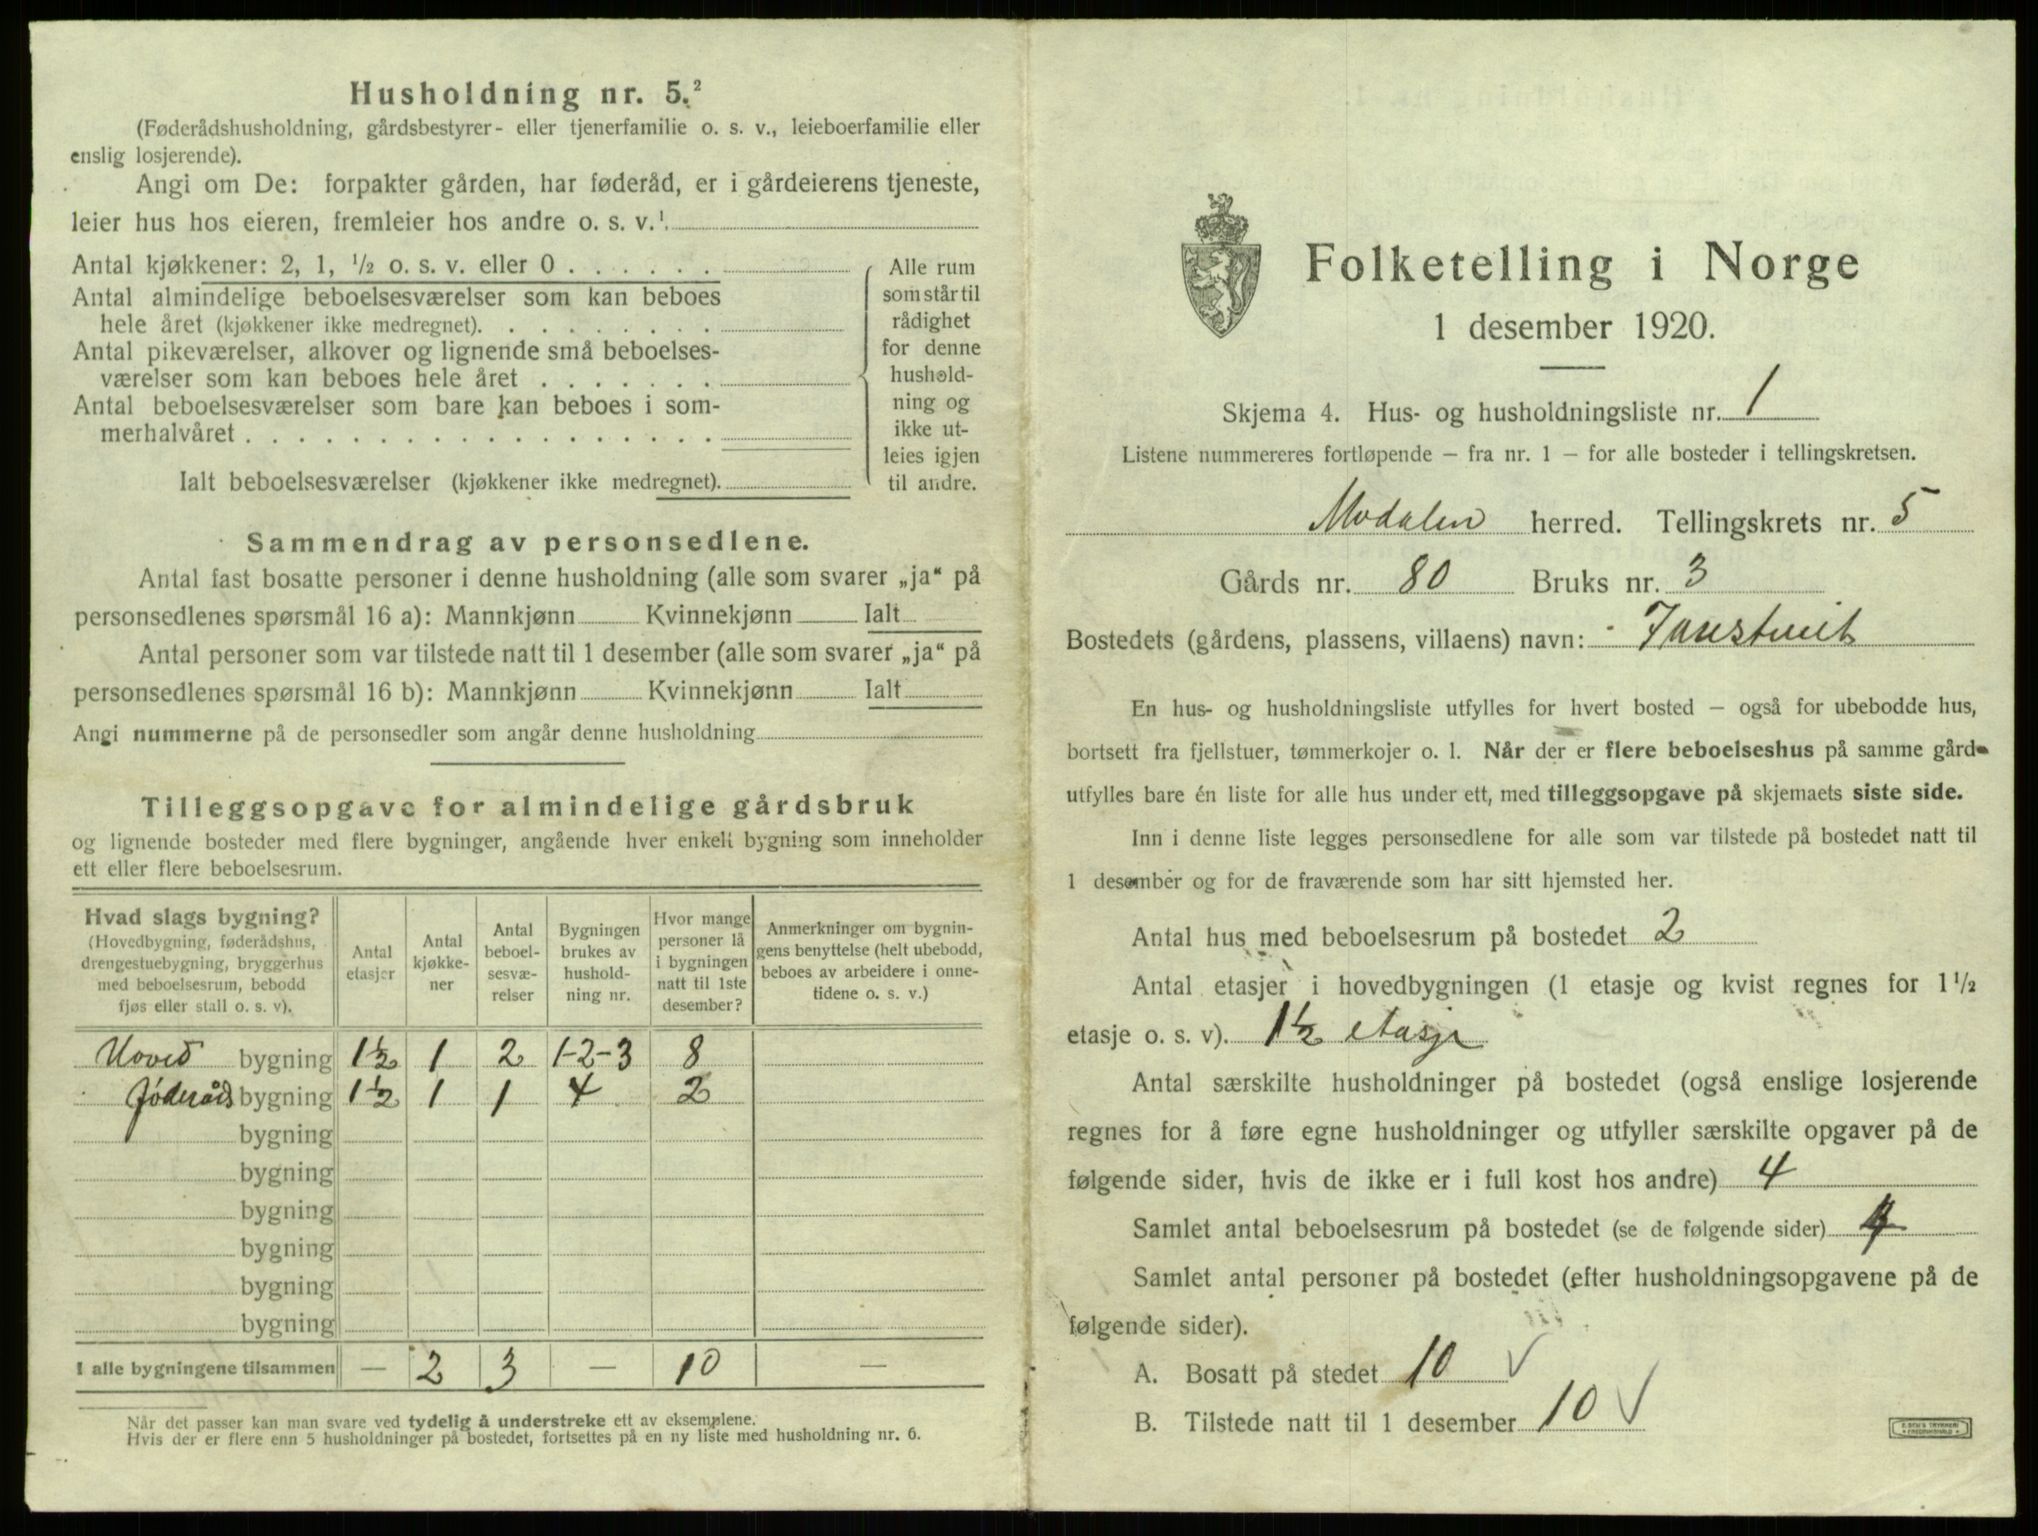 Husholdning nr. 5.²
(Føderådshusholdning, gårdsbestyrer- eller tjenerfamilie o. s. v., leieboerfamilie eller
enslig losjerende).
Angi om De: forpakter gården, har føderåd, er i gårdeierens tjeneste,
leier hus hos eieren, fremleier hos andre o. s. v.¹.
Antal kjøkkener: 2, 1, ½ o. s. v. eller 0
Antal almindelige beboelsesværelser som kan beboes
hele året (kjøkkener ikke medregnet).
Antal pikeværelser, alkover og lignende små beboelses-
værelser som kan beboes hele året
Antal beboelsesværelser som bare kan beboes i som-
merhalvåret
Ialt beboelsesværelser (kjøkkener ikke medregnet).
Alle rum
som står til
rådighet
for denne
hushold-
ning og
ikke ut-
leies igjen
til andre.
Sammendrag av personsedlene.
Antal fast bosatte personer i denne husholdning (alle som svarer „ja“ på
personsedlenes spørsmål 16 a): Mannkjønn Kvinnekjønn Ialt
Antal personer som var tilstede natt til 1 desember (alle som svarer „ja“ på
personsedlenes spørsmål 16 b): Mannkjønn Kvinnekjønn Ialt
Angi nummerne på de personsedler som angår denne husholdning
Tilleggsopgave for almindelige gårdsbruk
og lignende bosteder med flere bygninger, angående hver enkelt bygning som inneholder
ett eller flere beboelsesrum.
Hvad slags bygning?
(Hovedbygning, føderådshus,
drengestuebygning, bryggerhus
med beboelsesrum, bebodd
fjøs eller stall o. s. v).
Antal
etasjer
Antal
kjøkke-
ner
Antal
beboel-
sesvæ-
relser
Bygningen
brukes av
hushold-
ning nr.
Hvor mange
personer lå
i bygningen
natt til 1ste
desember?
Anmerkninger om bygnin-
gens benyttelse (helt ubebodd,
beboes av arbeidere i onne-
tidene o. s. v.)
Hoved bygning 1½ 1 2 1-2-3 8
Føderåds bygning 1½ 1 1 4 2
bygning
bygning
bygning
bygning
bygning
bygning
I alle bygningene tilsammen — 2 3 — 10 —
Når det passer kan man svare ved tydelig å understreke ett av eksemplene.
Hvis der er flere enn 5 husholdninger på bostedet, fortsettes på en ny liste med husholdning nr. 6.
Folketelling i Norge
1 desember 1920.
Skjema 4. Hus- og husholdningsliste nr. 1
Listene nummereres fortløpende – fra nr. 1 – for alle bosteder i tellingskretsen.
Modalen herred. Tellingskrets nr. 5
Gårds nr. 80 Bruks nr. 3
Bostedets (gårdens, plassens, villaens) navn:
En hus- og husholdningsliste utfylles for hvert bosted – også for ubebodde hus,
bortsett fra fjellstuer, tømmerkojer o. l. Når der er flere beboelseshus på samme gård
utfylles bare én liste for alle hus under ett, med tilleggsopgave på skjemaets siste side.
Inn i denne liste legges personsedlene for alle som var tilstede på bostedet natt til
1 desember og for de fraværende som har sitt hjemsted her.
Antal hus med beboelsesrum på bostedet 2
Antal etasjer i hovedbygningen (1 etasje og kvist regnes for 1½
etasje o. s. v). 1½ etasje
Antal særskilte husholdninger på bostedet (også enslige losjerende
regnes for å føre egne husholdninger og utfyller særskilte opgaver på de
følgende sider, hvis de ikke er i full kost hos andre) 4
Samlet antal beboelsesrum på bostedet (se de følgende sider)
Samlet antal personer på bostedet (efter husholdningsopgavene på de
følgende sider).
A. Bosatt på stedet 10 √
B. Tilstede natt til 1 desember 10 √